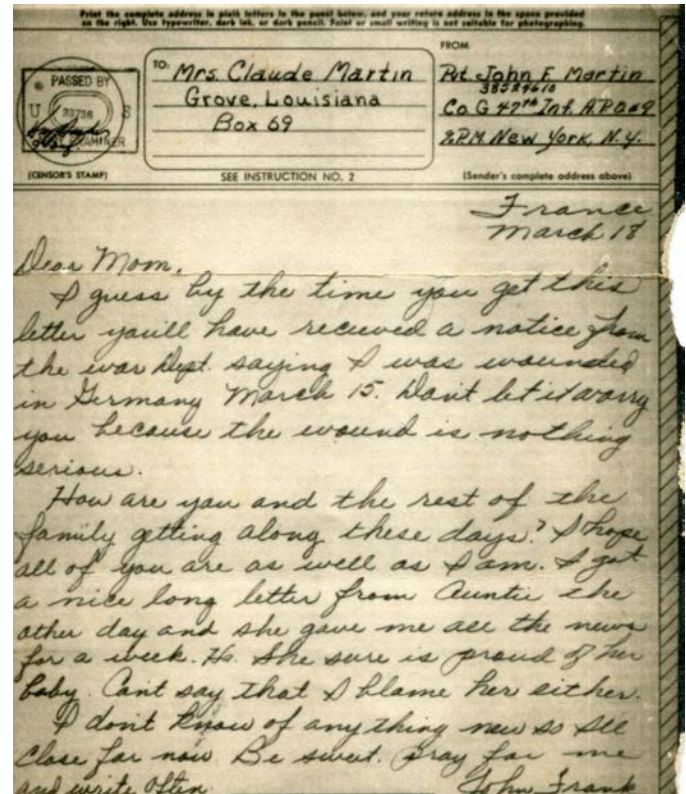 Print the complete address in plain letters in the panel below, and your return address in the space provided
on the right. Use typewriter, dark ink, or dark pencil. Faint or small writing is not suitable for photographing.
PASSED BY
U S
33736
EXAMINER
(CENSOR'S STAMP)
TO:
Mrs. Claude Martin
Grove, Louisiana
Box 69
SEE INSTRUCTION NO. 2
FROM
Pvt. John F. Martin
Co G 47th Inf. A.P.O. #9
℅ P.M. New York, N.Y.
(Sender's complete address above)
France
March 18
Dear Mom,
I guess by the time you get this
letter you'll have recieved a notice from
the war Dept. saying I was wounded
in Germany March 15. Don't let it worry
you because the wound is nothing
serious.
How are you and the rest of the
family getting along these days? I hope
all of you are as well as I am. I got
a nice long letter from Auntie the
other day and she gave me all the news
for a week. Ha. She sure is proud of her
baby. Cant say that I blame her either.
I don't know of anything new so Ill
close for now. Be sweet. Pray for me
and write often
John Frank